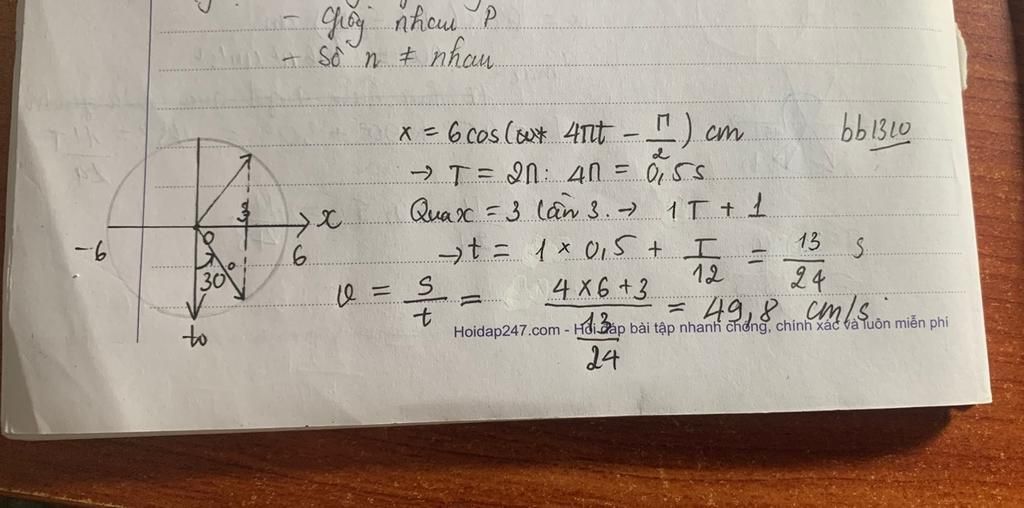 - giống nhau P
- Số n ≠ nhau
x = 6 cos (4πt - π/2) cm bb1310
→ T = 2π : 4π = 0,5 s
Qua x = 3 lần 3. → 1T + 1
→ t = 1 × 0,5 + T/12 = 13/24 s
v = S/t = (4 × 6 + 3)/(13/24) = 49,8 cm/s
-6 O 3 6 x
30°
to
Hoidap247.com - Hỏi đáp bài tập nhanh chóng, chính xác và luôn miễn phí